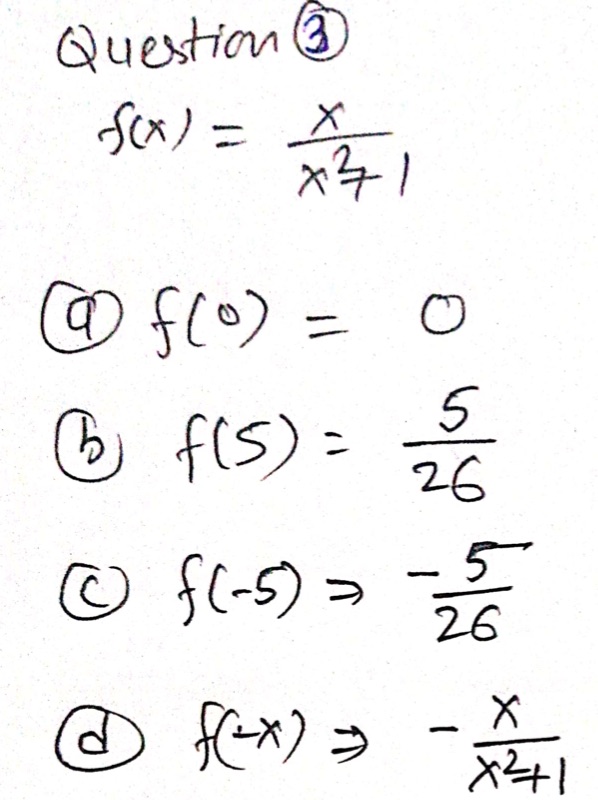 Question ③
f(x) = x/(x²+1)
ⓐ f(0) = 0
ⓑ f(5) = 5/26
ⓒ f(-5) ⇒ -5/26
ⓓ f(-x) ⇒ - x/(x²+1)